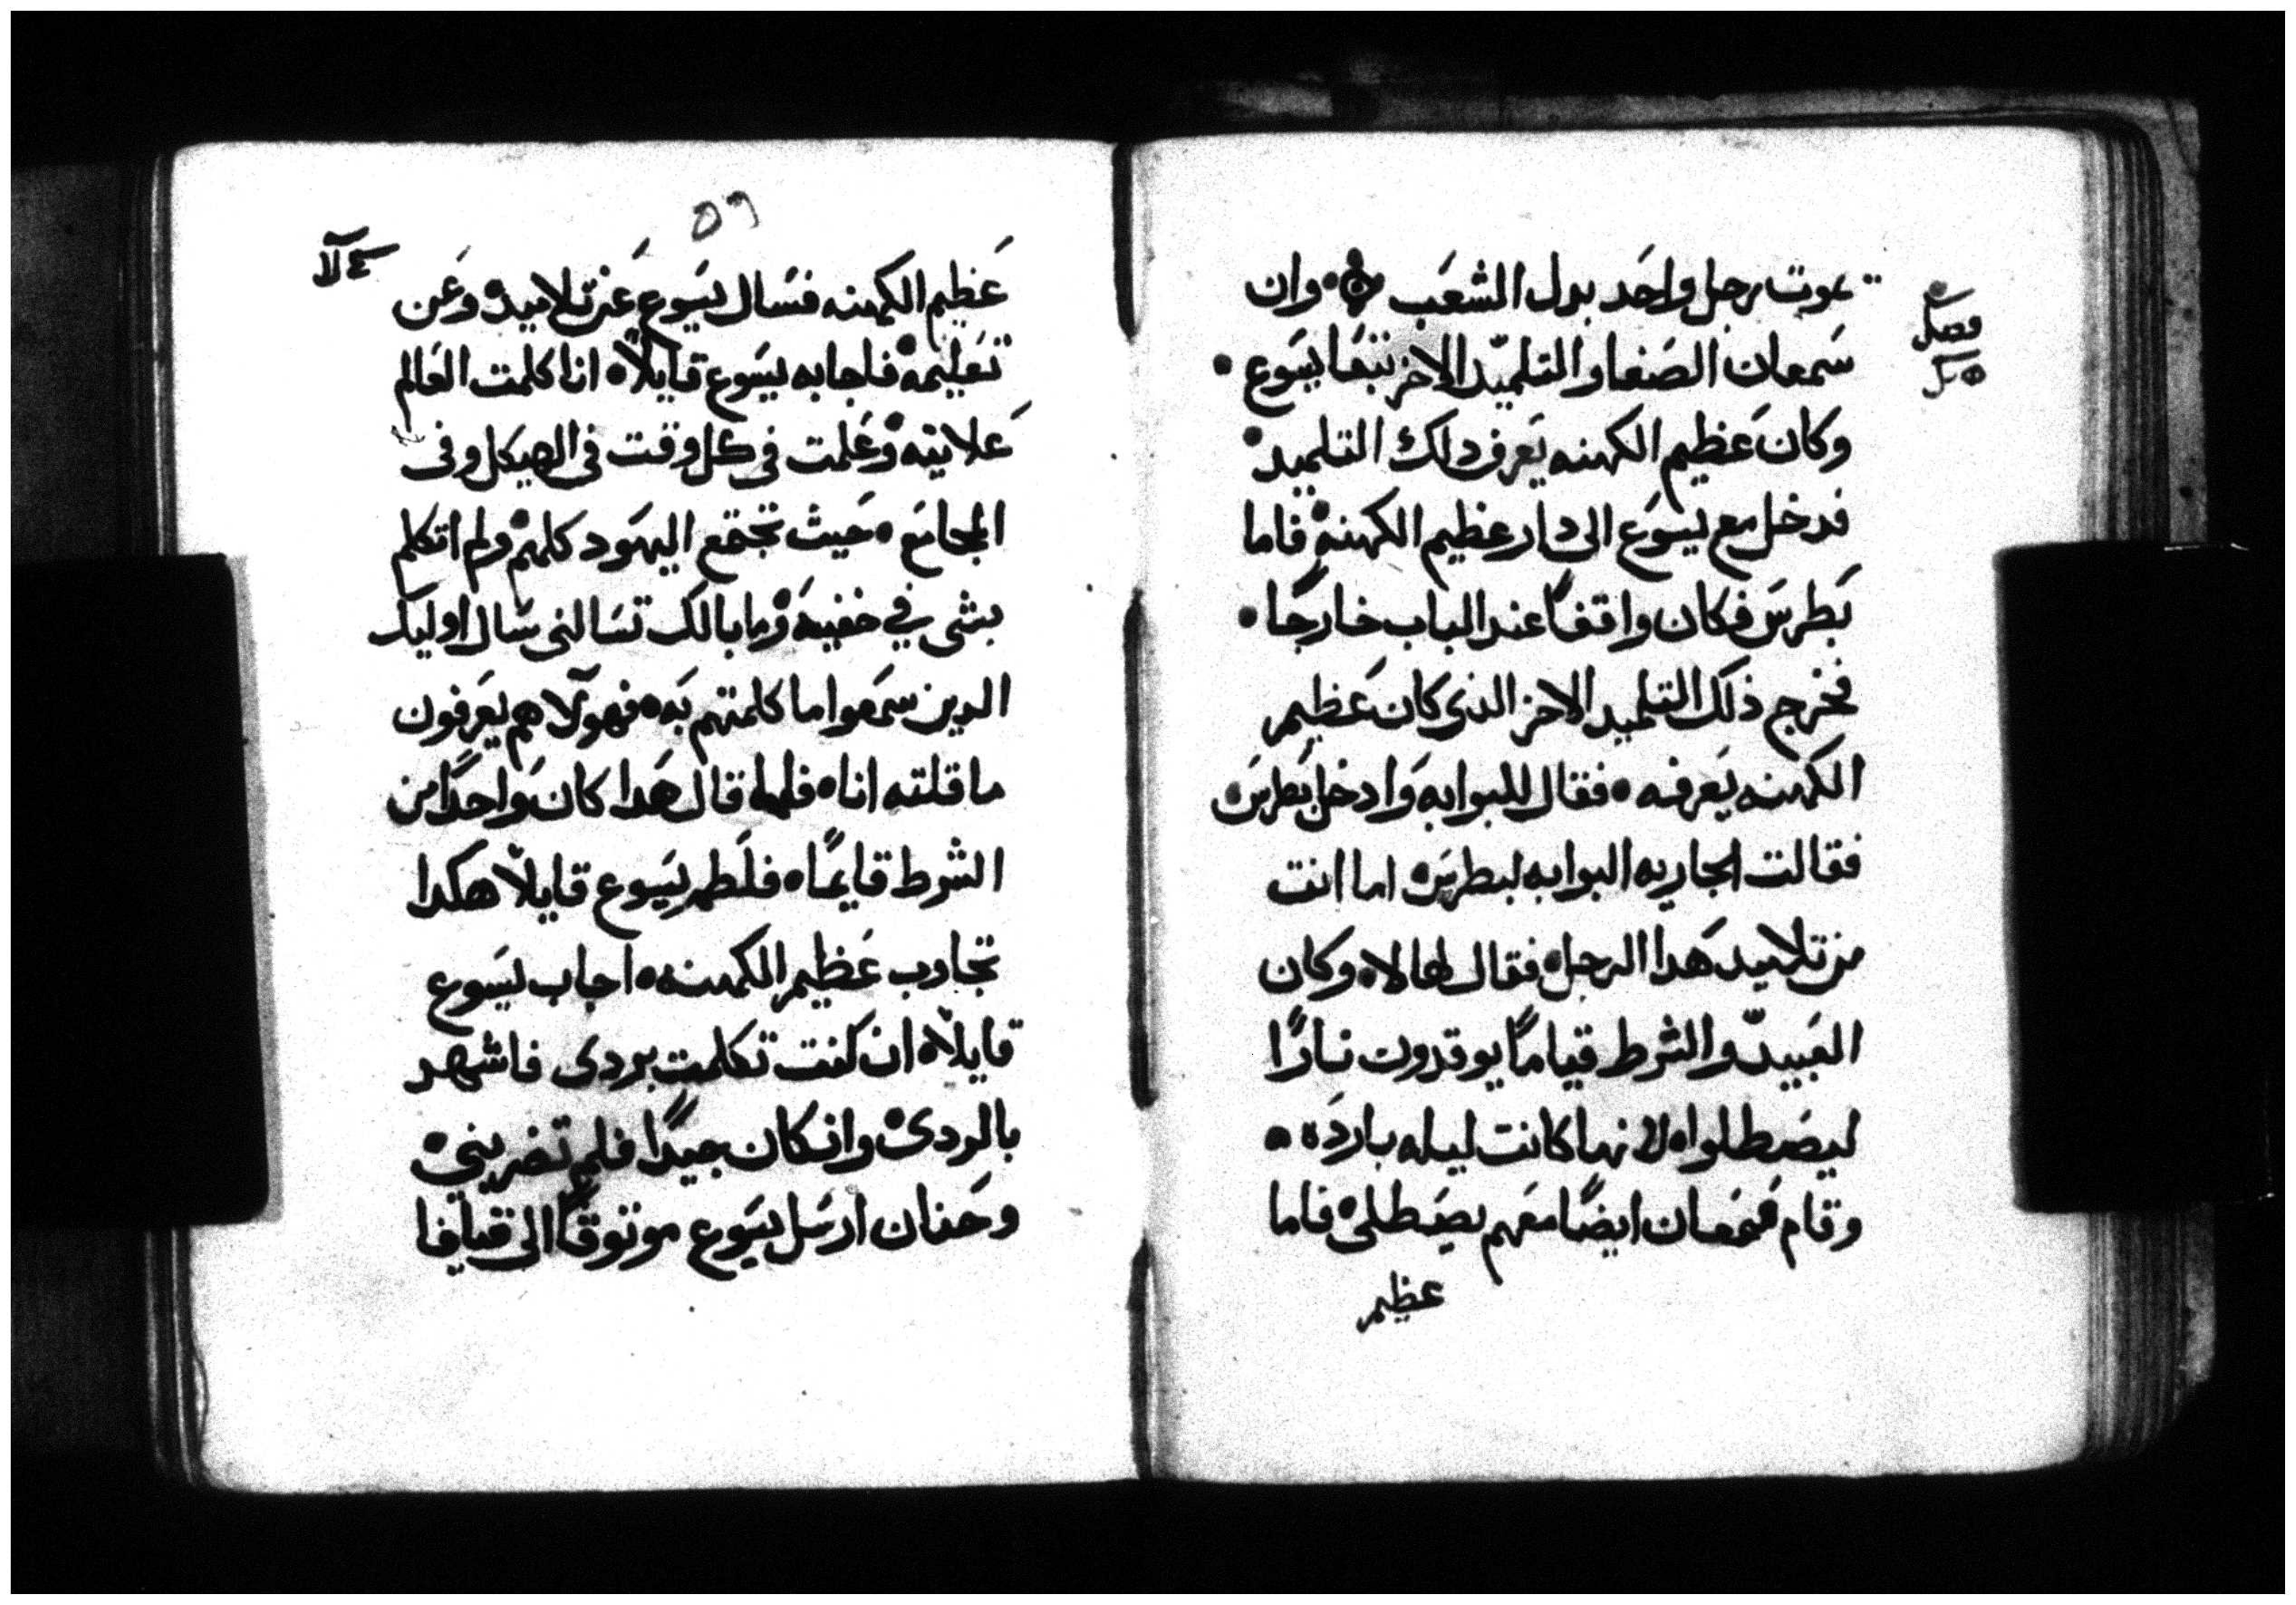 يموت رجل واحد بدل الشعب ۞ وان
فصل
سمعان الصفا والتلميد الاخر تبعا يسوع •
وكان عظيم الكهنه يعرف دلك التلميد •
فدخل مع يسوع الى دار عظيم الكهنه • فاما
بطرس فكان واقفاً عند الباب خارجا •
فخرج ذلك التلميد الاخر الذى كان عظيم
الكهنه يعرفه • فقال للبوابه وادخل بطرس •
فقالت الجاريه البوابه لبطرس • اما انت
من تلاميد هدا الرجل • فقال لها لا • وكان
العبيد والشرط قياماً يوقدون ناراً
ليصطلوا • لانها كانت ليله بارده •
وقام سمعان ايضاً معهم يصطلى • فاما
عظيم
٥٩
عظيم الكهنه فسال يسوع عن تلاميده وعن
تعليمه • فاجابه يسوع قايلاً • انا كلمت العالم
علانيه • وعلمت فى كل وقت فى الهيكل وفى
المجامع • حيث تجتمع اليهود كلهم • ولم اتكلم
بشى في خفيه • وما بالك تسالنى سال اوليك
الدين سمعوا ما كلمتهم به • فهولا هم يعرفون
ما قلته انا • فلما قال هدا كان واحداً من
الشرط قايماً • فلطم يسوع قايلاً هكدا
تجاوب عظيم الكهنه • اجاب يسوع
قايلاً • ان كنت تكلمت بردى فاشهد
بالردى • وان كان جيداً فلم تضربني •
وحنان ارسل يسوع موتوقاً الى قيافا